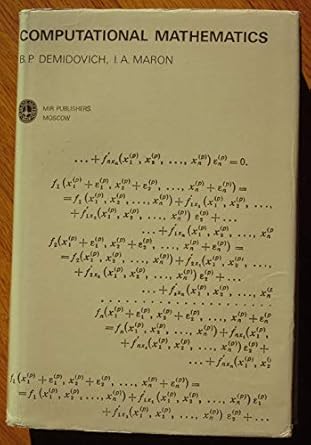 COMPUTATIONAL MATHEMATICS
B. P. DEMIDOVICH, I. A. MARON
MIR PUBLISHERS
MOSCOW
... + f'ₙₓₙ (x₁⁽ᵖ⁾, x₂⁽ᵖ⁾, ..., xₙ⁽ᵖ⁾) εₙ⁽ᵖ⁾ = 0.
f₁ (x₁⁽ᵖ⁾ + ε₁⁽ᵖ⁾, x₂⁽ᵖ⁾ + ε₂⁽ᵖ⁾, ..., xₙ⁽ᵖ⁾ + εₙ⁽ᵖ⁾) =
= f₁ (x₁⁽ᵖ⁾, x₂⁽ᵖ⁾, ..., xₙ⁽ᵖ⁾) + f'₁ₓ₁ (x₁⁽ᵖ⁾, x₂⁽ᵖ⁾, ...,
+ f'₁ₓ₂ (x₁⁽ᵖ⁾, x₂⁽ᵖ⁾, ..., xₙ⁽ᵖ⁾) ε₂⁽ᵖ⁾ + ...
... + f'₁ₓₙ (x₁⁽ᵖ⁾, x₂⁽ᵖ⁾, ..., xₙ⁽ᵖ
f₂ (x₁⁽ᵖ⁾ + ε₁⁽ᵖ⁾, x₂⁽ᵖ⁾ + ε₂⁽ᵖ⁾, ..., xₙ⁽ᵖ⁾ + εₙ⁽ᵖ⁾) =
= f₂ (x₁⁽ᵖ⁾, x₂⁽ᵖ⁾, ..., xₙ⁽ᵖ⁾) + f'₂ₓ₁ (x₁⁽ᵖ⁾, x₂⁽ᵖ⁾, ...,
+ f'₂ₓ₂ (x₁⁽ᵖ⁾, x₂⁽ᵖ⁾, ..., xₙ⁽ᵖ⁾) ε₂⁽ᵖ⁾ + ...
... + f'₂ₓₙ (x₁⁽ᵖ⁾, x₂⁽ᵖ⁾, ..., xₙ
. . . . . . . . . . . . . . . . . . . .
fₙ (x₁⁽ᵖ⁾ + ε₁⁽ᵖ⁾, x₂⁽ᵖ⁾ + ε₂⁽ᵖ⁾, ..., xₙ⁽ᵖ⁾ + εₙ⁽ᵖ⁾)
= fₙ (x₁⁽ᵖ⁾, x₂⁽ᵖ⁾, ..., xₙ⁽ᵖ⁾) + f'ₙₓ₁ (x₁⁽ᵖ⁾,
+ f'ₙₓ₂ (x₁⁽ᵖ⁾, x₂⁽ᵖ⁾, ..., xₙ⁽ᵖ⁾) ε₂⁽ᵖ⁾ +
... + f'ₙₓₙ (x₁⁽ᵖ⁾, x₂
f₁ (x₁⁽ᵖ⁾ + ε₁⁽ᵖ⁾, x₂⁽ᵖ⁾ + ε₂⁽ᵖ⁾, ..., xₙ⁽ᵖ⁾ + εₙ⁽ᵖ⁾) =
= f₁ (x₁⁽ᵖ⁾, x₂⁽ᵖ⁾, ..., xₙ⁽ᵖ⁾) + f'₁ₓ₁ (x₁⁽ᵖ⁾, x₂⁽ᵖ⁾, ..., xₙ⁽ᵖ⁾) ε₁⁽ᵖ
+ f'₁ₓ₂ (x₁⁽ᵖ⁾, x₂⁽ᵖ⁾, ..., xₙ⁽ᵖ⁾) ε₂⁽ᵖ⁾ + ...